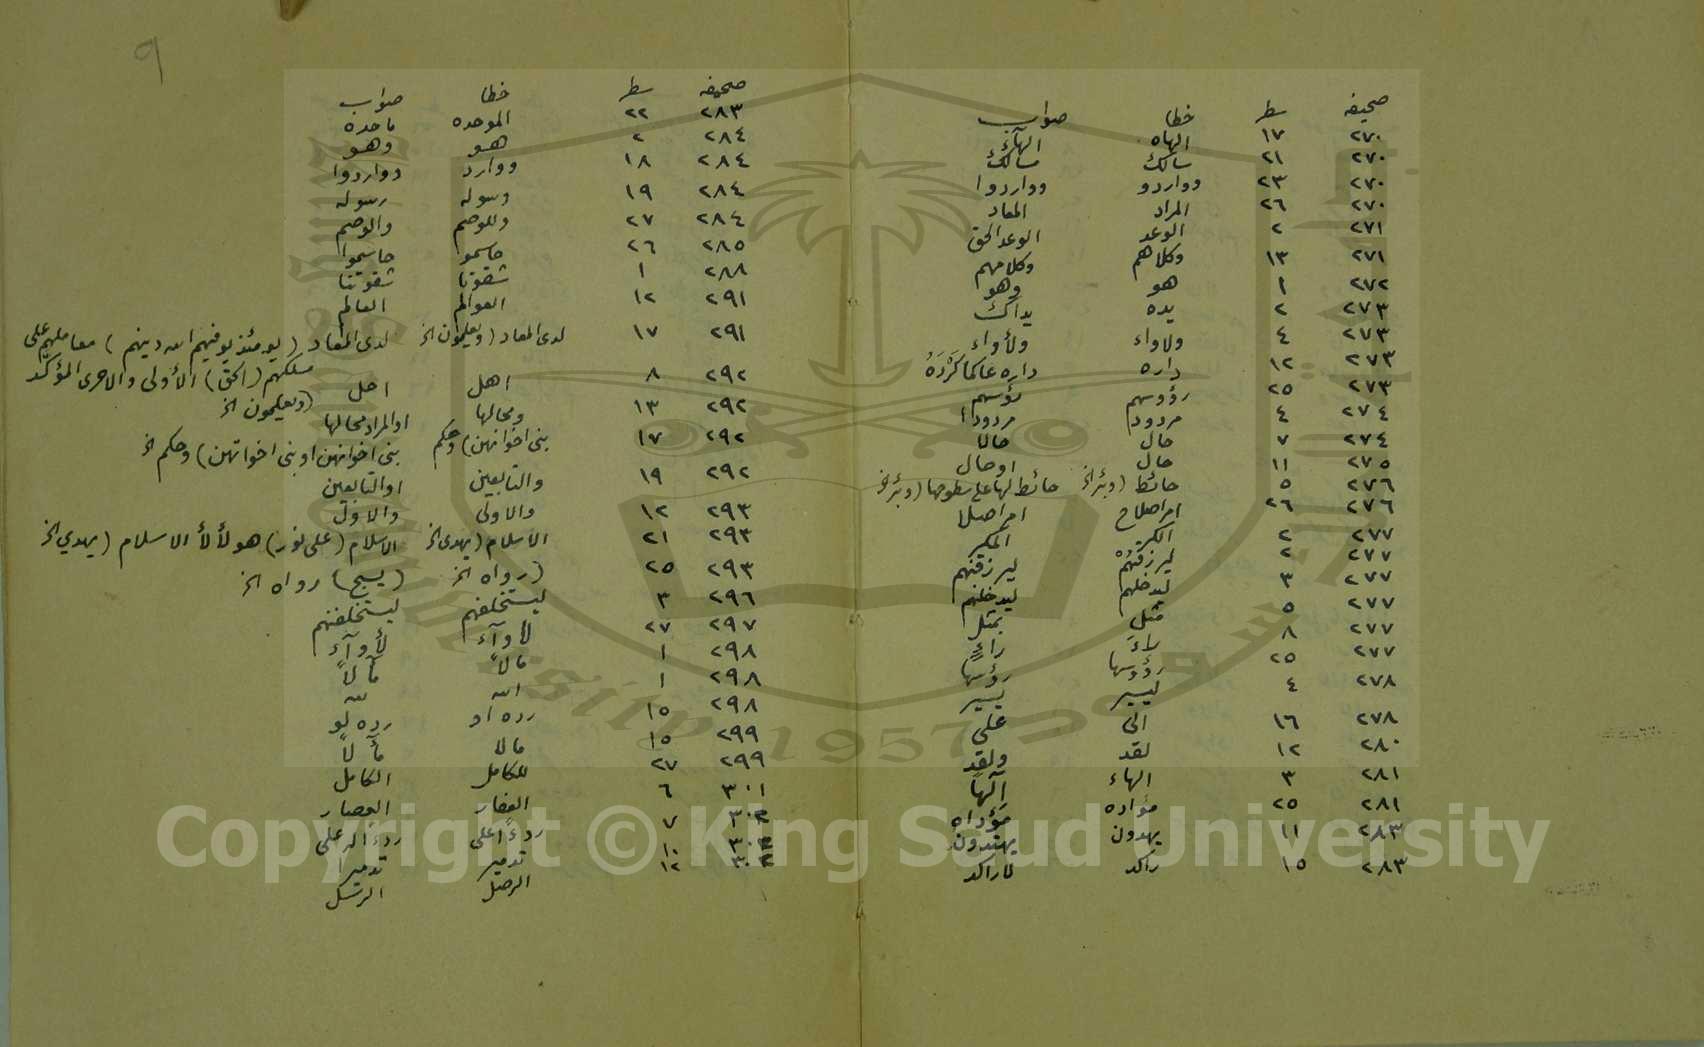 صحيفه سطر خطا صواب
٢٧٠ ١٧ الهاه الهآء
٢٧٠ ٢١ سالك مسالك
٢٧٠ ٢٣ وواردو وواردوا
٢٧٠ ٢٦ المراد المعاد
٢٧١ ٢ الوعد الوعد الحق
٢٧١ ١٣ وكلاهم وكلامهم
٢٧٢ ١ هو وهو
٢٧٣ ٢ يده يداك
٢٧٣ ٤ ولاواء ولأواء
٢٧٣ ١٢ داره داره عاكما كَرْدَهُ
٢٧٣ ٢٥ رؤوسهم رؤسهم
٢٧٤ ٤ مردود مردودا
٢٧٤ ٧ حال حالا
٢٧٥ ١١ حال اوحال
٢٧٦ ٥ حائط (وبئر الخ حائط لها على سطوحها (وبئر الخ
٢٧٦ ٢٦ امراصلاح امراصلا
٢٧٧ ٢ الكر المكر
٢٧٧ ٢ ليرزقنهُمْ ليرزقنهم
٢٧٧ ٣ ليدخلهم ليدخلنهم
٢٧٧ ٥ مثل بمثل
٢٧٧ ٨ راءَ راءٍ
٢٧٧ ٢٥ رؤوسها رؤسها
٢٧٨ ٤ ليسير يسير
٢٧٨ ١٦ الى على
٢٨٠ ١٢ لقد ولقد
٢٨١ ٣ الهاء آلهاً
٢٨١ ٢٥ مؤاده مؤداه
٢٨٣ ١١ يهدون يهتدون
٢٨٣ ١٥ راكد لاراكد
٩
صحيفه سطر خطا صواب
٢٨٣ ٢٢ الموحده ماحده
٢٨٤ ٢ هو وهو
٢٨٤ ١٨ ووارد وواردوا
٢٨٤ ١٩ وسوله رسوله
٢٨٤ ٢٧ وللوصم والوصم
٢٨٥ ٢٦ حاسمو حاسموا
٢٨٨ ١ شقوتا شقوتنا
٢٩١ ١٢ العوالم العالم
٢٩١ ١٧ لدى المعاد (ويعلمون الخ لدى المعاد (يومئذ يوفيهم الله دينهم) معاملهم على
مسلكهم (الحق) الأولى والاحرى المؤكد
(ويعلمون الخ
٢٩٢ ٨ اهل احل
٢٩٢ ١٣ ومحالها اوالمراد محالها
٢٩٢ ١٧ بنى اخوانهن) وحكم بنى اخوانهن اوبنى اخواتهن) وحكم الخ
٢٩٢ ١٩ والتابعين اوالتابعين
٢٩٣ ١٢ والاولى والاول
٢٩٣ ٢١ الاسلام (يهدى الخ الاسلام (على نور) هو لألأ الاسلام (يهدي الخ
٢٩٣ ٢٥ (رواه الخ (يسبح) رواه الخ
٢٩٦ ٣ ليستخلفهم ليستخلفنهم
٢٩٧ ٢٧ لأوآء لأوآء
٢٩٨ ١ مالاً مآلاً
٢٩٨ ١ الله لله
٢٩٨ ١٥ رده او رده لو
٢٩٩ ١٥ مالا مآلاً
٢٩٩ ٢٧ للكامل الكامل
٣٠١ ٦ العفار العصار
٧ ردءً اعلى
١٠ تدمير تدميرا
١٢ الرصل الرسل
Copyright © King Saud University
1957